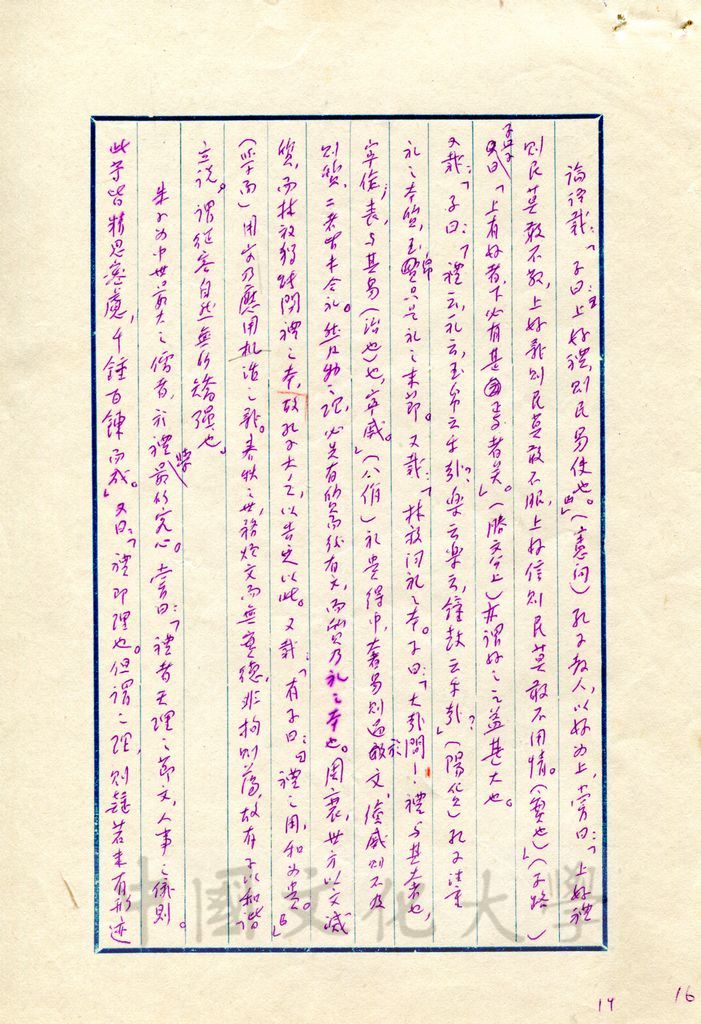 論語載：「子曰：上好禮則民易使也。」（憲問）孔子教人，以好為上，嘗曰：「上好禮
則民莫敢不敬，上好義則民莫敢不服，上好信則民莫敢不用情。（實也）」（子路）
孟子又曰「上有好者，下必有甚焉者矣。」（滕文公上）亦謂好之之益甚大也。
又載：「子曰：『禮云，禮云，玉帛云乎哉？樂云樂云，鐘鼓云乎哉？』」（陽貨）孔子注重
禮之本質，玉帛只是禮之末節。又載：「林放問禮之本。子曰：「大哉問！禮與其奢也，
寧儉；喪，與其易（治也）也，寧戚。」（八佾）禮貴得中，奢易則過於文，儉戚則不及
則質，二者皆未合禮。然凡物之理，必先有質而後有文，而質乃禮之本也。周衰，世方以文滅
質，而林放獨能問禮之本，故孔子大之，以告之以此。又載：「有子曰：『禮之用，和為貴。』」
（學而）用字乃應用機活之義。春秋之世，務於文而無實德，非拘則蕩，故有子以和諧
立說。謂從容自然無所矯強也。
朱子為中世最大之儒者，於禮學最所究心。嘗曰：「禮者天理之節文，人事之儀則。
此字皆精思密慮，千錘百鍊而成。」又曰：「禮即理也。但謂之理，則疑若未有形迹
中國文化大學
14
16